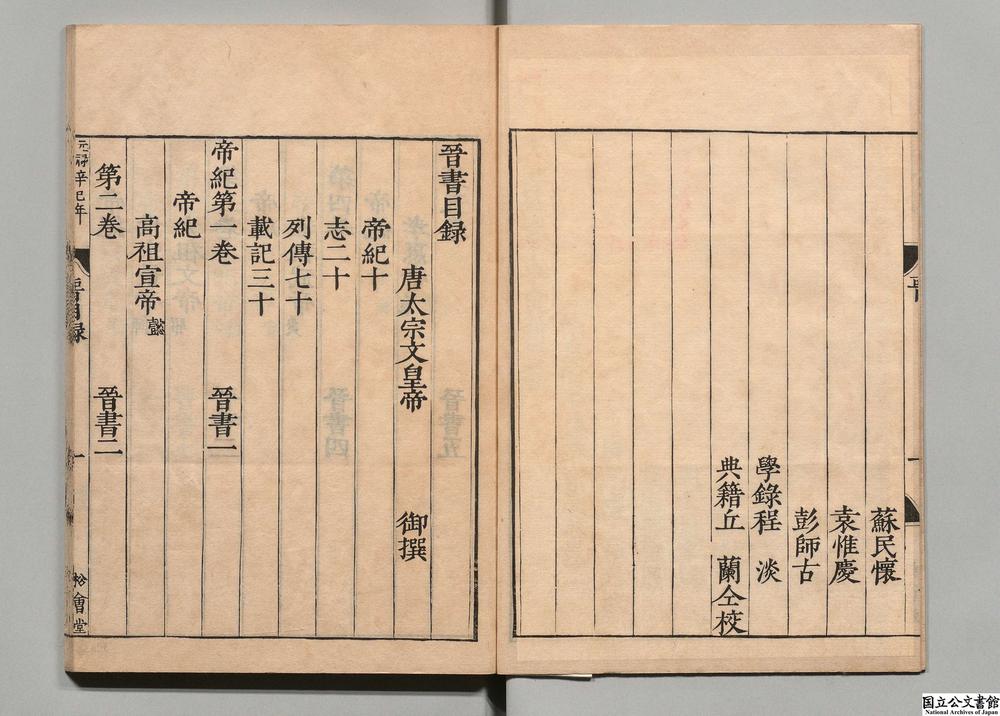 蘇民懷
袁惟慶
彭師古
學錄程　淡
典籍丘　蘭仝校
晉書目録
唐太宗文皇帝　御撰
帝紀十
志二十
列傳七十
載記三十
帝紀第一卷　晉書一
帝紀
高祖宣帝懿
第二卷　晉書二
元祿辛巳年
晉目録
一
松會堂
国立公文書館
National Archives of Japan